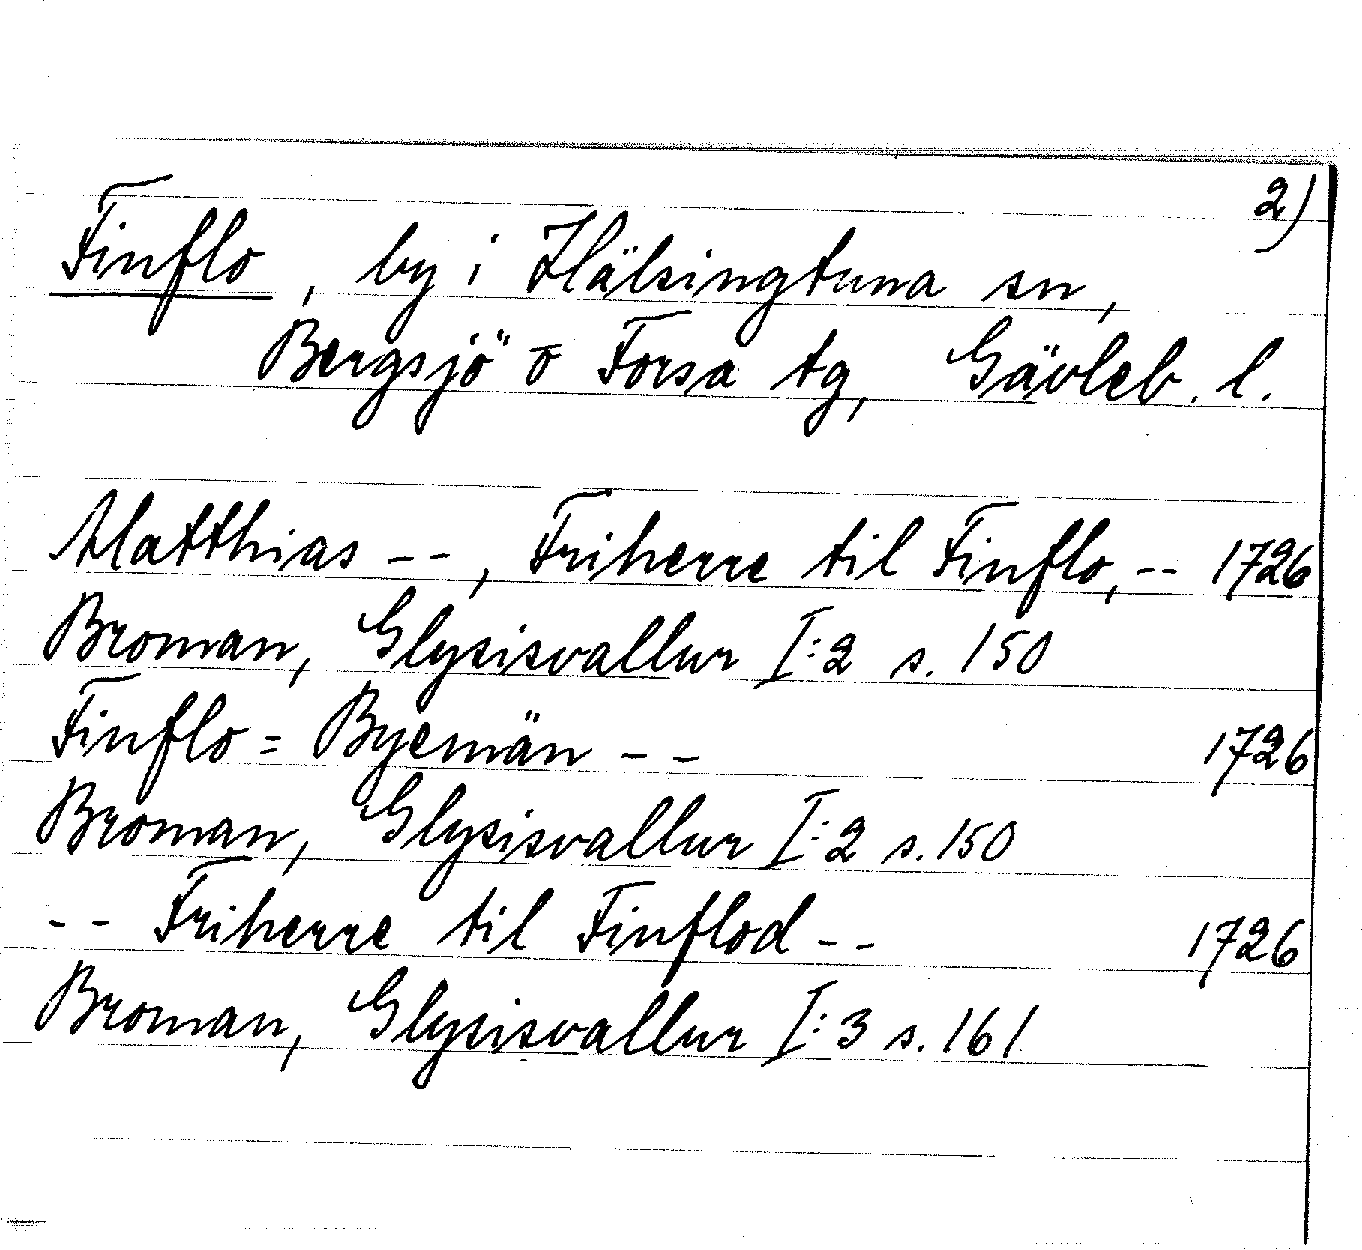 2)
Finflo, by i Hälsingtuna sn,
Bergsjö o Forsa tg, Gävleb. l.
Matthias -- , Friherre til Finflo, -- 1726
Broman, Glysisvallur I:2 s. 150
Finflo = Byemän -- 1726
Broman, Glysisvallur I:2 s. 150
-- Friherre til Finflod -- 1726
Broman, Glysisvallur I:3 s. 161